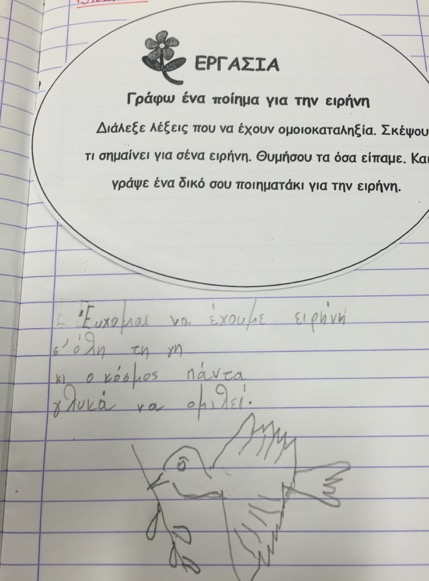 ΕΡΓΑΣΙΑ
Γράφω ένα ποίημα για την ειρήνη
Διάλεξε λέξεις που να έχουν ομοιοκαταληξία. Σκέψου
τι σημαίνει για σένα ειρήνη. Θυμήσου τα όσα είπαμε. Και
γράψε ένα δικό σου ποιηματάκι για την ειρήνη.
Εύχομαι να έχουμε ειρήνη
σ' όλη τη γη
κι ο κόσμος πάντα
γλυκά να ομιλεί.